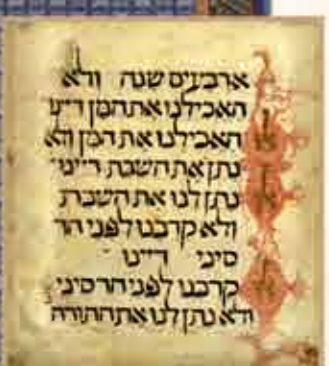 ארבעים שנה ולא
האכילנו את המן דיינו
האכילנו את המן ולא
נתן את השבת דיינו
נתן לנו את השבת
ולא קרבנו לפני הר
סיני דיינו
קרבנו לפני הר סיני
ולא נתן לנו את התורה